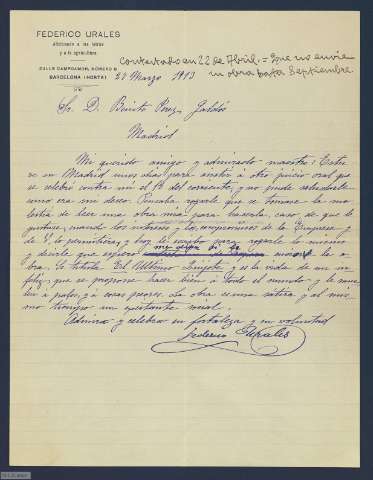 FEDERICO URALES
Aficionado a las letras
y a la agricultura
CALLE CAMPOAMOR, NÚMERO
BARCELONA (HORTA)
Contestado en 22 de Abril. = Que no envíe
su obra hasta Septiembre.
Marzo 1913
Sr. D. Benito Pérez Galdós
Madrid
Mi querido amigo y admirado maestro: Estu-
ve en Madrid unos días para asistir á otro juicio oral que
se celebró contra mí el 1º del corriente, y no pude saludarle
como era mi deseo. Pensaba rogarle que se tomase la mo-
lestia de leer una obra mía para hacerla, caso de que le
gustase, cuando los intereses y los compromisos de la Empresa y
de V. lo permitieran, y hoy le escribo para rogarle lo mismo
y decirle que espero me diga si le mando la o-
bra. Se titula El Último Quijote y es la vida de un in-
feliz que se propone hacer bien á todo el mundo y le mue-
len á palos, y á cosas peores. La obra es una sátira y al mis-
mo tiempo un social.
Admira y celebra su fortaleza y su voluntad
Federico Urales